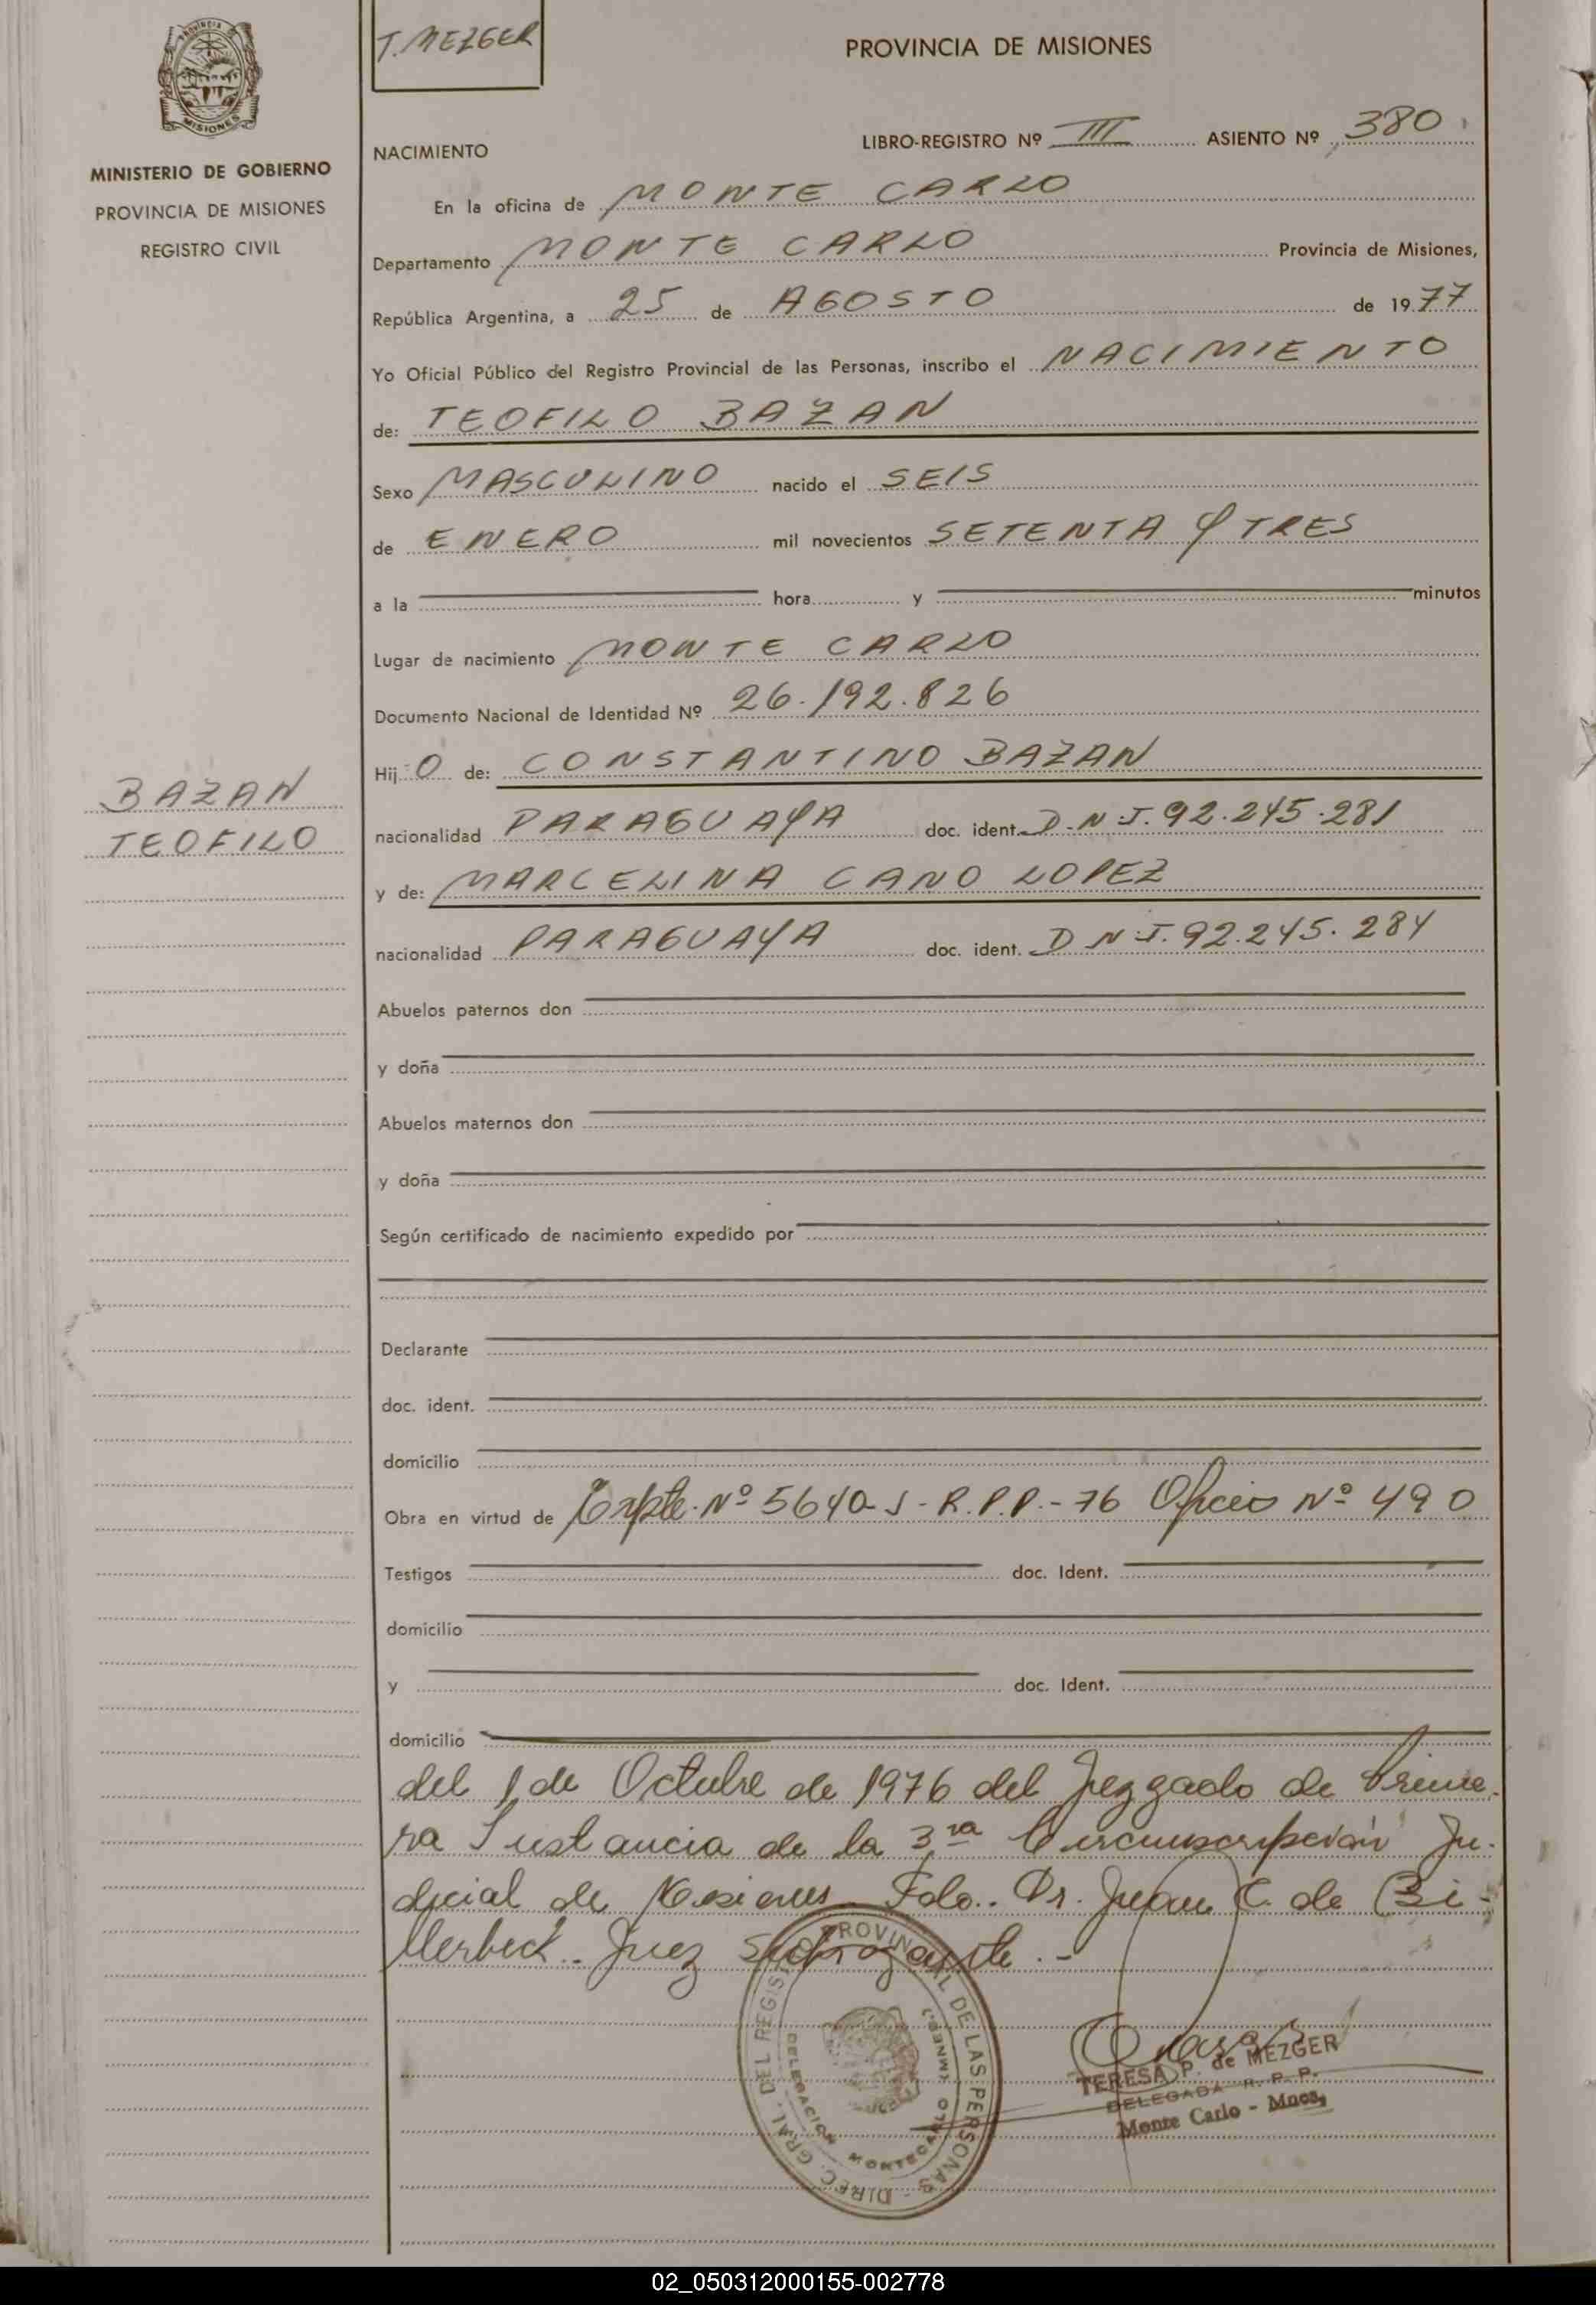 T. MEZGER
PROVINCIA DE MISIONES
MISIONES
MINISTERIO DE GOBIERNO
PROVINCIA DE MISIONES
REGISTRO CIVIL
NACIMIENTO
LIBRO-REGISTRO Nº III ASIENTO Nº 380
En la oficina de MONTE CARLO
Departamento MONTE CARLO Provincia de Misiones,
República Argentina, a 25 de AGOSTO de 1977
Yo Oficial Público del Registro Provincial de las Personas, inscribo el NACIMIENTO
de: TEOFILO BAZAN
Sexo MASCULINO nacido el SEIS
de ENERO mil novecientos SETENTA Y TRES
a la hora y minutos
Lugar de nacimiento MONTE CARLO
Documento Nacional de Identidad Nº 26.192.826
Hij O de: CONSTANTINO BAZAN
BAZAN
TEOFILO
nacionalidad PARAGUAYA doc. ident. D.N.I. 92.245.281
y de: MARCELINA CANO LOPEZ
nacionalidad PARAGUAYA doc. ident. D N I. 92.245.284
Abuelos paternos don
y doña
Abuelos maternos don
y doña
Según certificado de nacimiento expedido por
Declarante
doc. ident.
domicilio
Obra en virtud de Expte. Nº 5640-J-R.P.P.-76 Oficio Nº 490
Testigos doc. Ident.
domicilio
y doc. Ident.
domicilio
del 1 de Octubre de 1976 del Juzgado de Prime-
ra Instancia de la 3ra Circunscripción Ju-
dicial de Misiones. Fdo.. Dr. Juan C. de Bi-
llerbeck. Juez Subrogante.-
DIREC. GRAL. DEL REGISTRO PROVINCIAL DE LAS PERSONAS
DELEGACION MONTECARLO (MNES.)
TERESA P. de MEZGER
DELEGADA R. P. P.
Monte Carlo - Mnes,
02_050312000155-002778